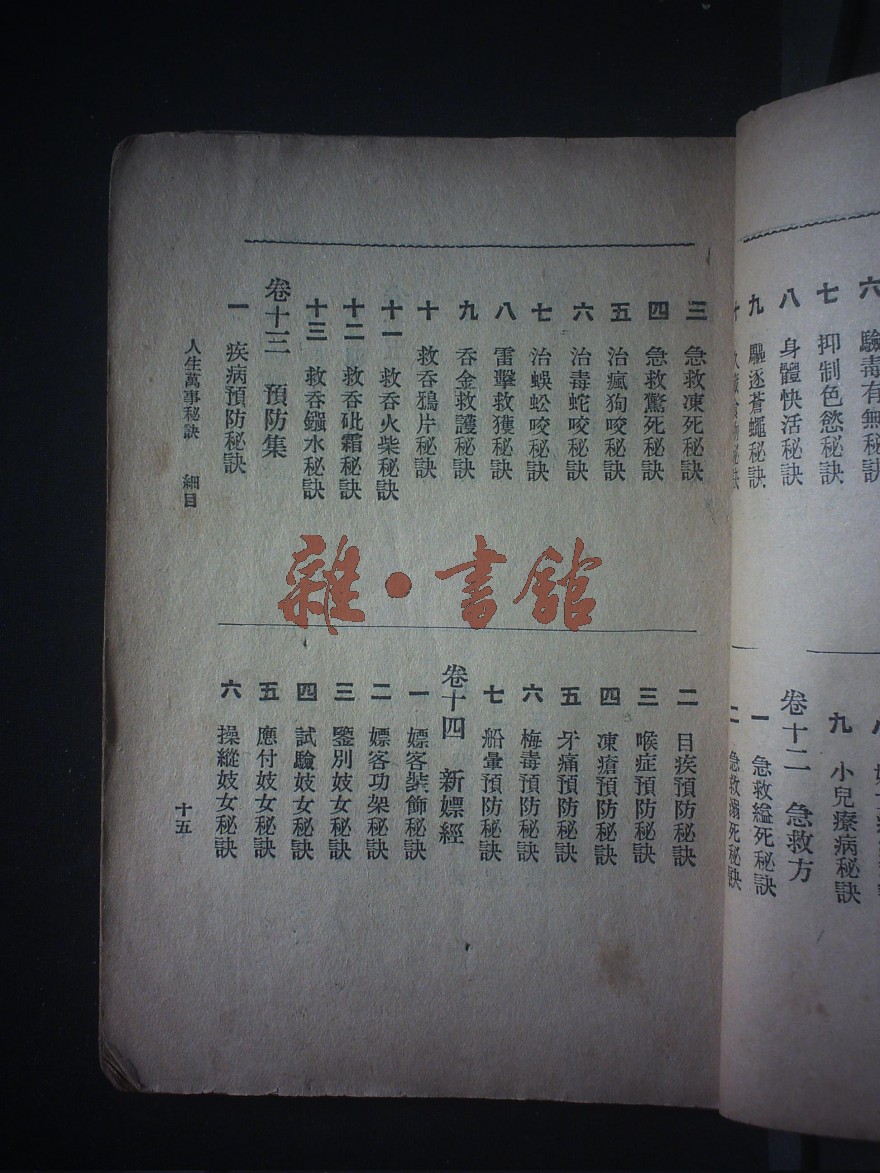 六 驗毒有無秘訣
七 抑制色慾秘訣
八 身體快活秘訣
九 驅逐蒼蠅秘訣
九 小兒療病秘訣
卷十二 急救方
一 急救縊死秘訣
二 急救溺死秘訣
三 急救凍死秘訣
四 急救驚死秘訣
五 治瘋狗咬秘訣
六 治毒蛇咬秘訣
七 治蜈蚣咬秘訣
八 雷擊救獲秘訣
九 吞金救護秘訣
十 救吞鴉片秘訣
十一 救吞火柴秘訣
十二 救吞砒霜秘訣
十三 救吞鏹水秘訣
卷十三 預防集
一 疾病預防秘訣
二 目疾預防秘訣
三 喉症預防秘訣
四 凍瘡預防秘訣
五 牙痛預防秘訣
六 梅毒預防秘訣
七 船暈預防秘訣
卷十四 新嫖經
一 嫖客裝飾秘訣
二 嫖客功架秘訣
三 鑒別妓女秘訣
四 試驗妓女秘訣
五 應付妓女秘訣
六 操縱妓女秘訣
人生萬事秘訣 細目
十五
雜·書館